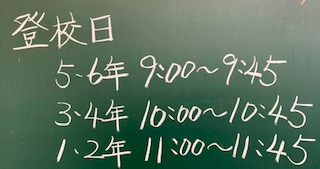 登校日
5・6年 9:00〜9:45
3・4年 10:00〜10:45
1・2年 11:00〜11:45